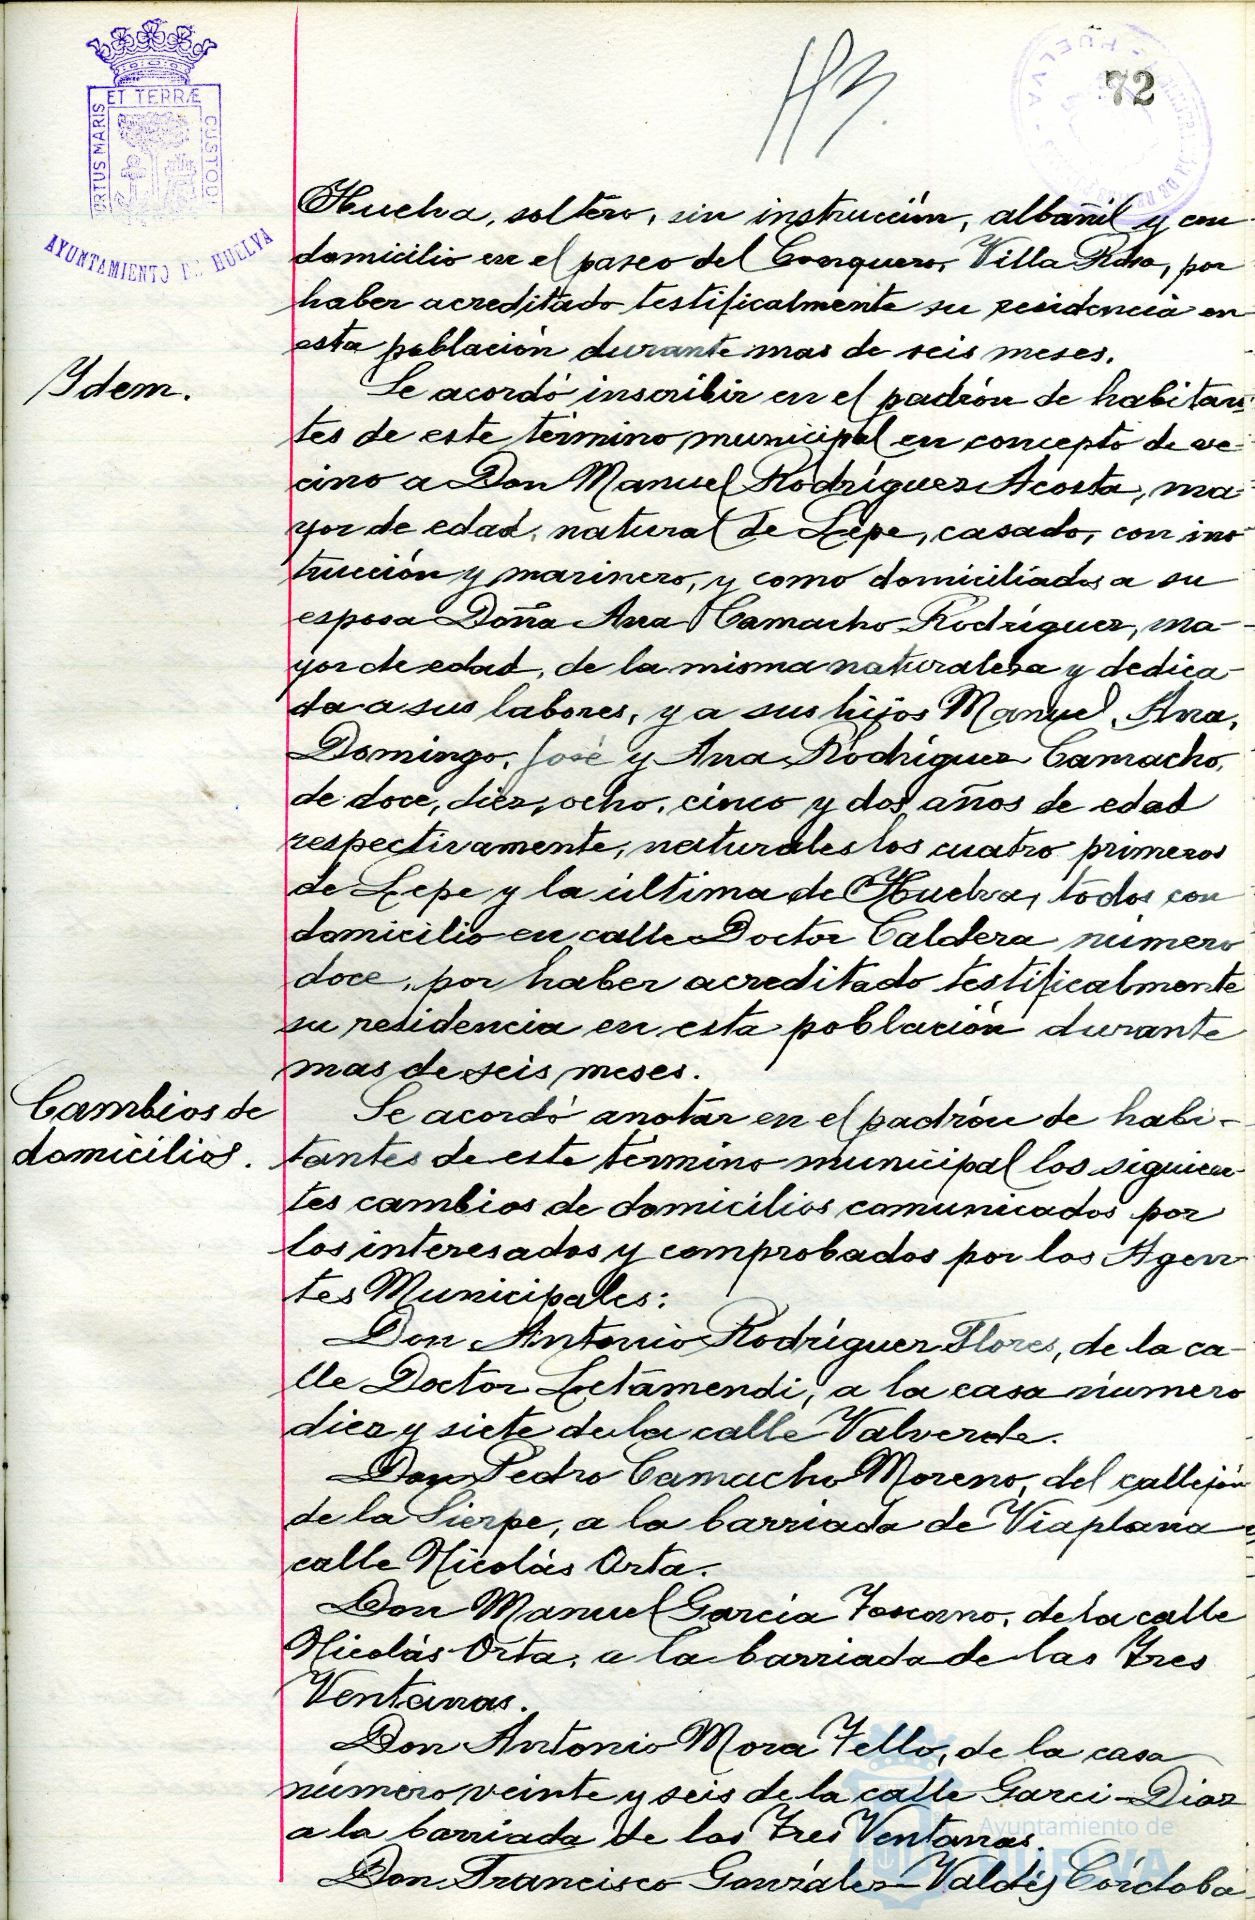 ET TERRÆ
PORTUS MARIS
CUSTODI
AYUNTAMIENTO DE HUELVA
HUELVA
72
113.
Huelva, soltero, sin instrucción, albañil y con
domicilio en el paseo del Conquero, Villa Rosa, por
haber acreditado testificalmente su residencia en
esta población durante mas de seis meses.
Ydem.
Se acordó inscribir en el padrón de habitan-
tes de este término municipal en concepto de ve-
cino a Don Manuel Rodríguez Acosta, ma-
yor de edad, natural de Lepe, casado, con ins-
trucción y marinero, y como domiciliados a su
esposa Doña Ana Camacho Rodríguez, ma-
yor de edad, de la misma naturaleza y dedica-
da a sus labores, y a sus hijos Manuel, Ana,
Domingo, José y Ana Rodríguez Camacho,
de doce, diez, ocho, cinco y dos años de edad
respectivamente, naturales los cuatro primeros
de Lepe y la última de Huelva, todos con
domicilio en calle Doctor Caldera número
doce, por haber acreditado testificalmente
su residencia en esta población durante
mas de seis meses.
Cambios de
domicilios.
Se acordó anotar en el padrón de habi-
tantes de este término municipal los siguien-
tes cambios de domicilios comunicados por
los interesados y comprobados por los Agen-
tes Municipales:
Don Antonio Rodríguez Flores, de la ca-
lle Doctor Letamendi, a la casa número
diez y siete de la calle Valverde.
Don Pedro Camacho Moreno, del callejón
de la Sierpe, a la barriada de Viaplana
calle Nicolás Orta.
Don Manuel García Toscano, de la calle
Nicolás Orta, a la barriada de las Tres
Ventanas.
Don Antonio Mora Tello, de la casa
número veinte y seis de la calle Garci-Díaz
a la barriada de las Tres Ventanas.
Don Francisco González-Valdés Córdoba
Ayuntamiento de
HUELVA